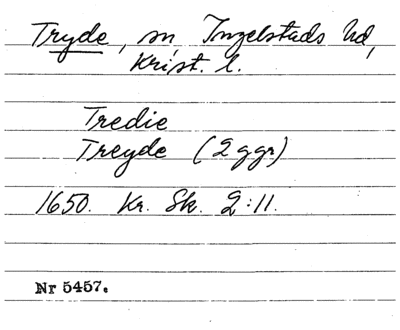 Tryde, sn, Ingelstads hd,
Krist. l.
Tredie
Treyde (2 ggr)
1650. Kr. Sk. 2:11.
Nr 5457.